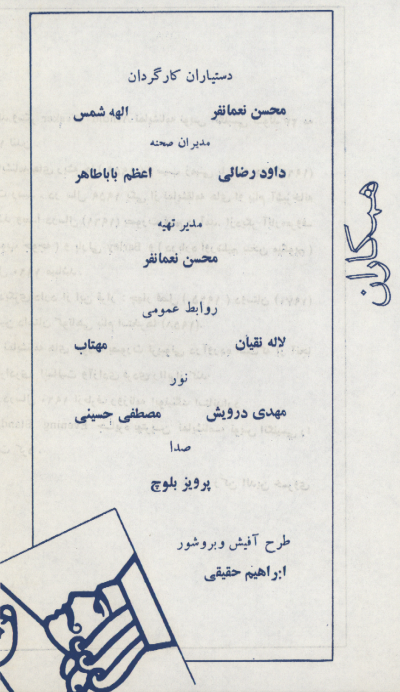 همکاران
دستیاران کارگردان
محسن نعمانفر الهه شمس
مدیران صحنه
داود رضائی اعظم باباطاهر
مدیر تهیه
محسن نعمانفر
روابط عمومی
لاله تقیان مهتاب
نور
مهدی درویش مصطفی حسینی
صدا
پرویز بلوچ
طرح آفیش و بروشور
ابراهیم حقیقی